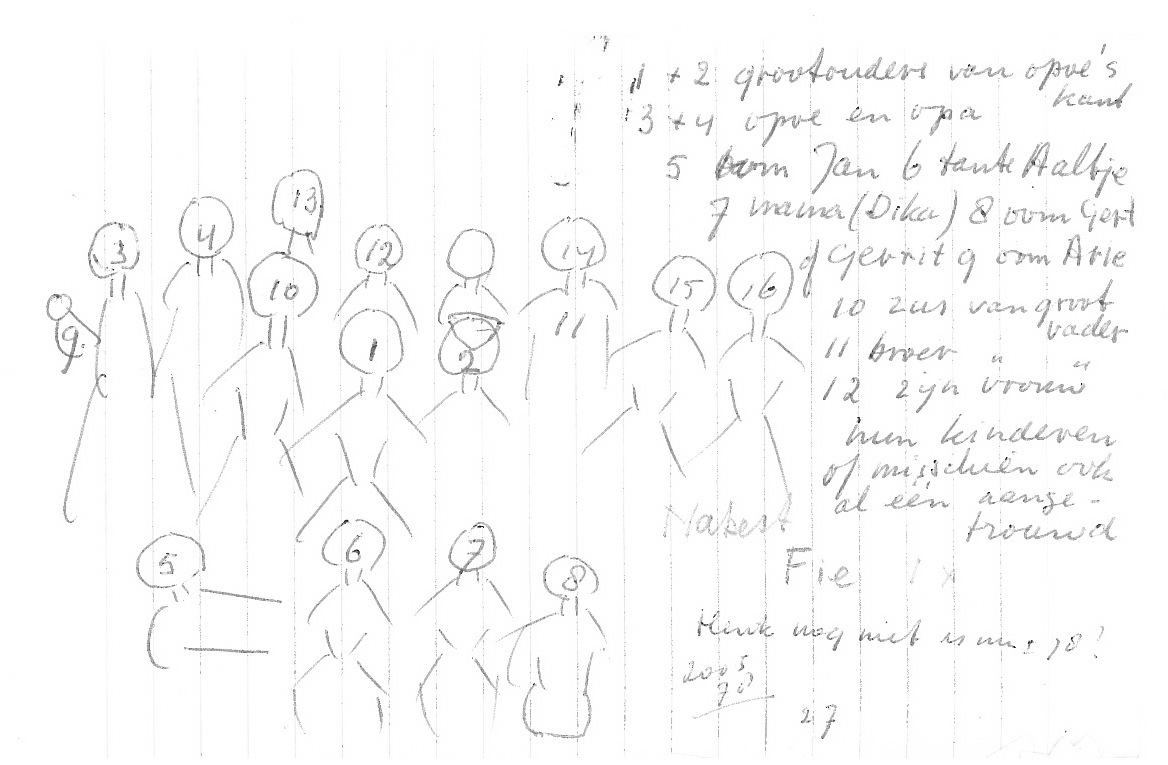 1 + 2 grootouders van opoe's
kant
3 + 4 opoe en opa
5 oom Jan 6 tante Aaltje
7 mama (Dika) 8 oom Gert
of Gerrit 9 oom Arie
10 zus van groot
vader
11 broer " "
12 zijn vrouw
hun kinderen
of misschien ook
al eén aange-
trouwd
13
4
3
12
14
10
15
16
9
1
2
11
5
6
7
8
Fie 1 x
Henk nog niet is nu 78!
2005
78
27